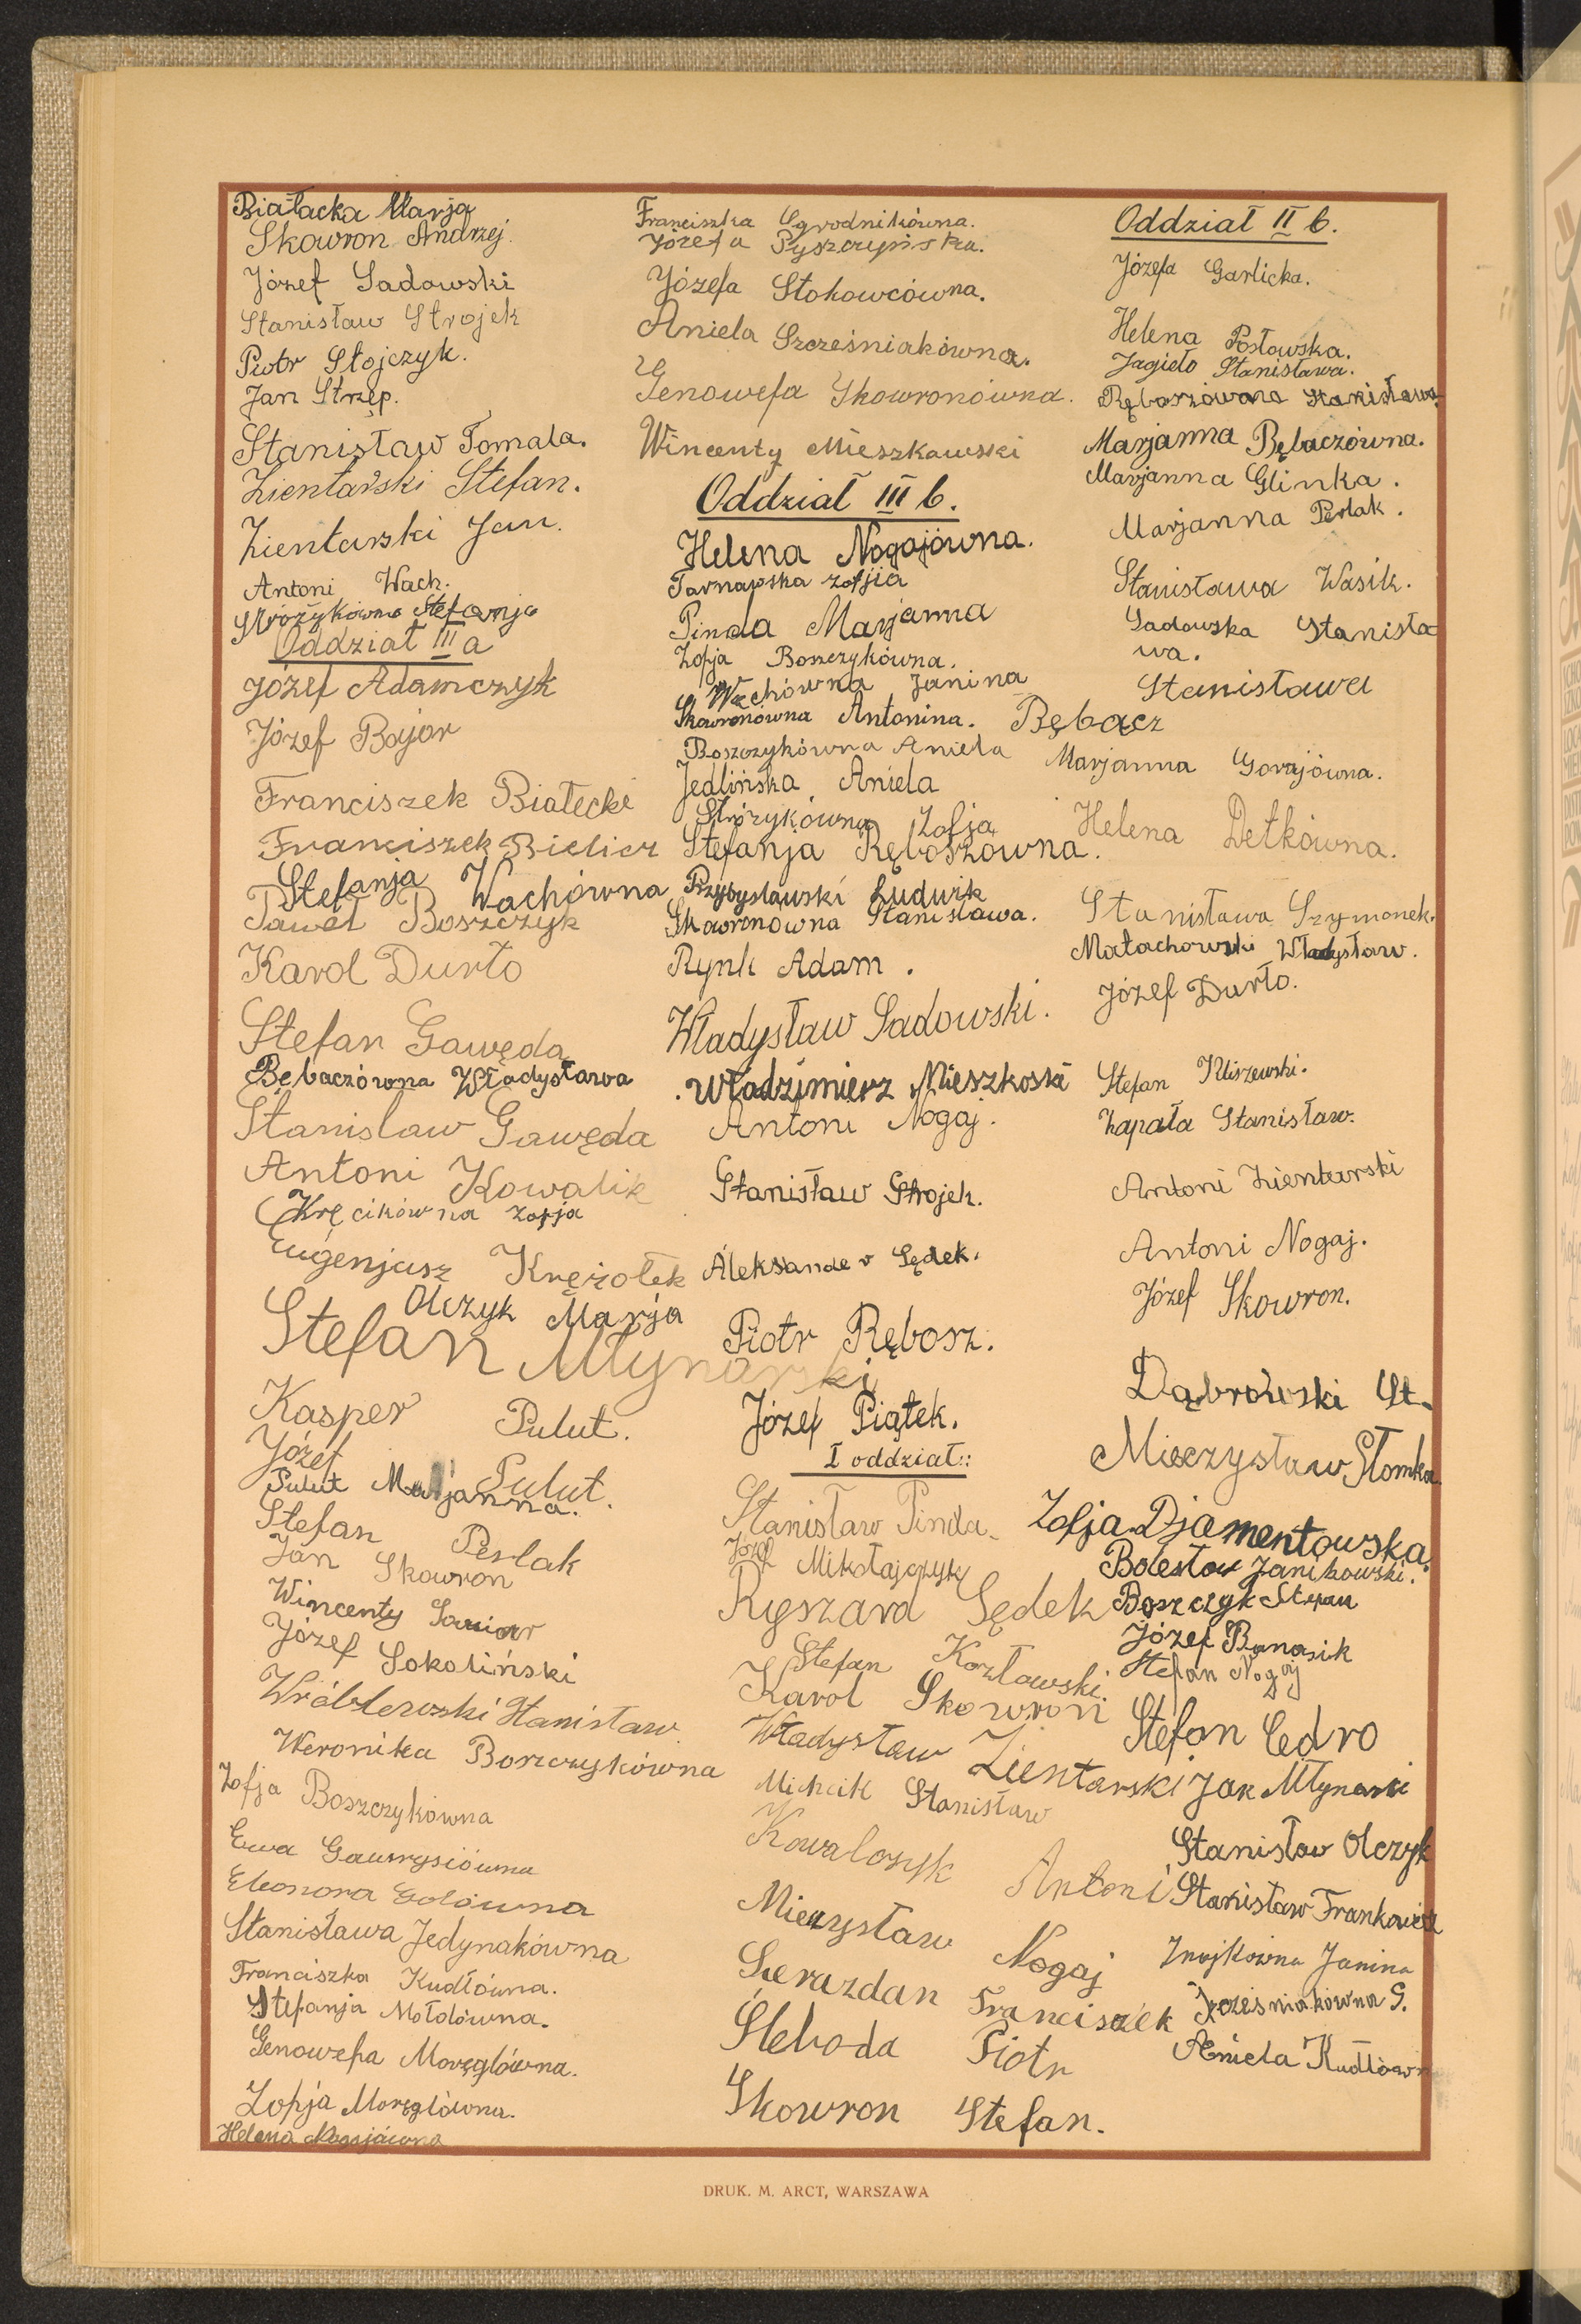 Białacka Marja
Skowron Andrzej.
Józef Sadowski
Stanisław Strojek
Piotr Stojczyk.
Jan Strzęp.
Stanisław Tomala.
Zientarski Stefan.
Zientarski Jan.
Antoni Wach.
Stróżykówna Stefanja
Oddział III a
Józef Adamczyk
Józef Bojar
Franciszek Białecki
Franciszek Bielicz
Stefanja Wachówna
Paweł Boszczyk
Karol Durło
Stefan Gawęda
Bębaczówna Władysława
Stanislaw Gawęda
Antoni Kowalik
Kręcikówna Zofja
Eugenjusz Krężołek
Olczyk Marja
Stefan Młynarski
Kasper Pulut.
Józef Pulut.
Pulut Marjanna.
Stefan Perlak
Jan Skowron
Wincenty
Józef Sokoliński
Wróblewski Stanisław
Weronika Boszczykówna
Zofja Boszczykówna
Ewa Gawrysiówna
Eleonora Golówna
Stanisława Jedynakówna
Franciszka Kudłówna.
Stefanja Mołdówna.
Genowefa Moręglówna.
Zofja Moręglówna.
Helena Nogajówna
Franciszka Ogrodnikówna.
Józefa Pyszczyńska.
Józefa Stokowcówna.
Aniela Szcześniakówna.
Genowefa Skowronówna.
Wincenty Mieszkawski
Oddział III b.
Helena Nogajówna.
Tarnapska Zofjia
Pinda Marjanna
Zofja Boszczykówna.
Wachówna Janina
Skowronówna Antonina.
Boszczykówna Aniela
Jedlińska Aniela
Stróżykówna Zofja
Stefanja Ręboszówna.
Przybysławski Ludwik
Skawronówna Stanisława.
Rynk Adam.
Władysław Sadowski.
Władzimierz Mieszkoski
Antoni Nogaj.
Stanisław Strojek.
Aleksander Sędek.
Piotr Rębosz.
Józef Piątek.
I oddział:
Stanisław Pinda.
Józef Mikołajczyk
Ryszard Sędek
Stefan Kozłowski.
Karol Skowron
Władysław Zientarski
Michcik Stanisław
Kowalczyk Antoni
Mieczysław Nogaj
Szerazdan Franciszek
Śleboda Piotr
Skowron Stefan.
Oddział II b.
Józefa Garlicka.
Helena Posłowska.
Jagieło Stanisława.
Ręboszówana Stanisława
Marjanna Bębaczówna.
Marjanna Glinka.
Marjanna Perlak.
Stanisława Wasik.
Sadowska Stanisła
wa.
Stanisława
Bębacz
Marjanna Gorajówna.
Helena Detkówna.
Stanisława Szymonek.
Małachowski Władysław.
Józef Durło.
Stefan Kliszewski.
Zapała Stanisław.
Antoni Zientarski
Antoni Nogaj.
Józef Skowron.
Dąbrowski St.
Mieczysław Słomka
Zofja Djamentowska.
Bolesław Janikowski.
Boszczyk Stefan
Józef Banasik
Stefan Nogaj
Stefan Cedro
Jan Młynarski
Stanisław Olczyk
Stanisław Frankowicz
Znojkówna Janina
Szcześniakówna G.
Aniela Kudłówn
DRUK. M. ARCT, WARSZAWA